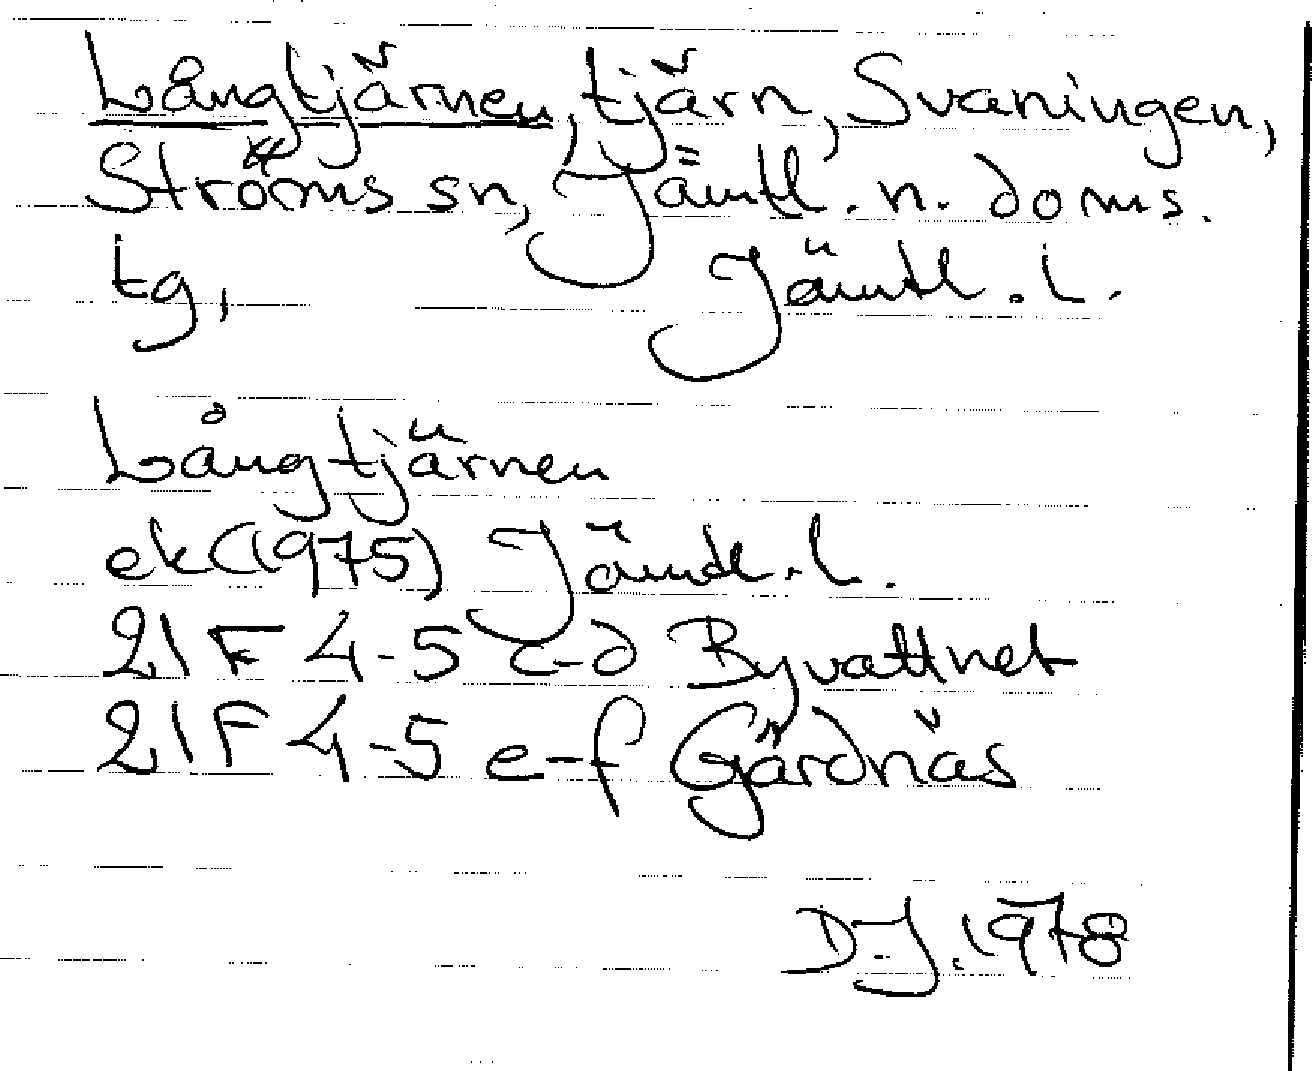 Långtjärnen, tjärn, Svaningen,
Ströms sn, Jämtl. n. doms.
tg, Jämtl. l.
Långtjärnen
ek (1975) Jämtl. l.
21F 4-5 c-d Byvattnet
21F 4-5 e-f Gärdnäs
D.J. 1978